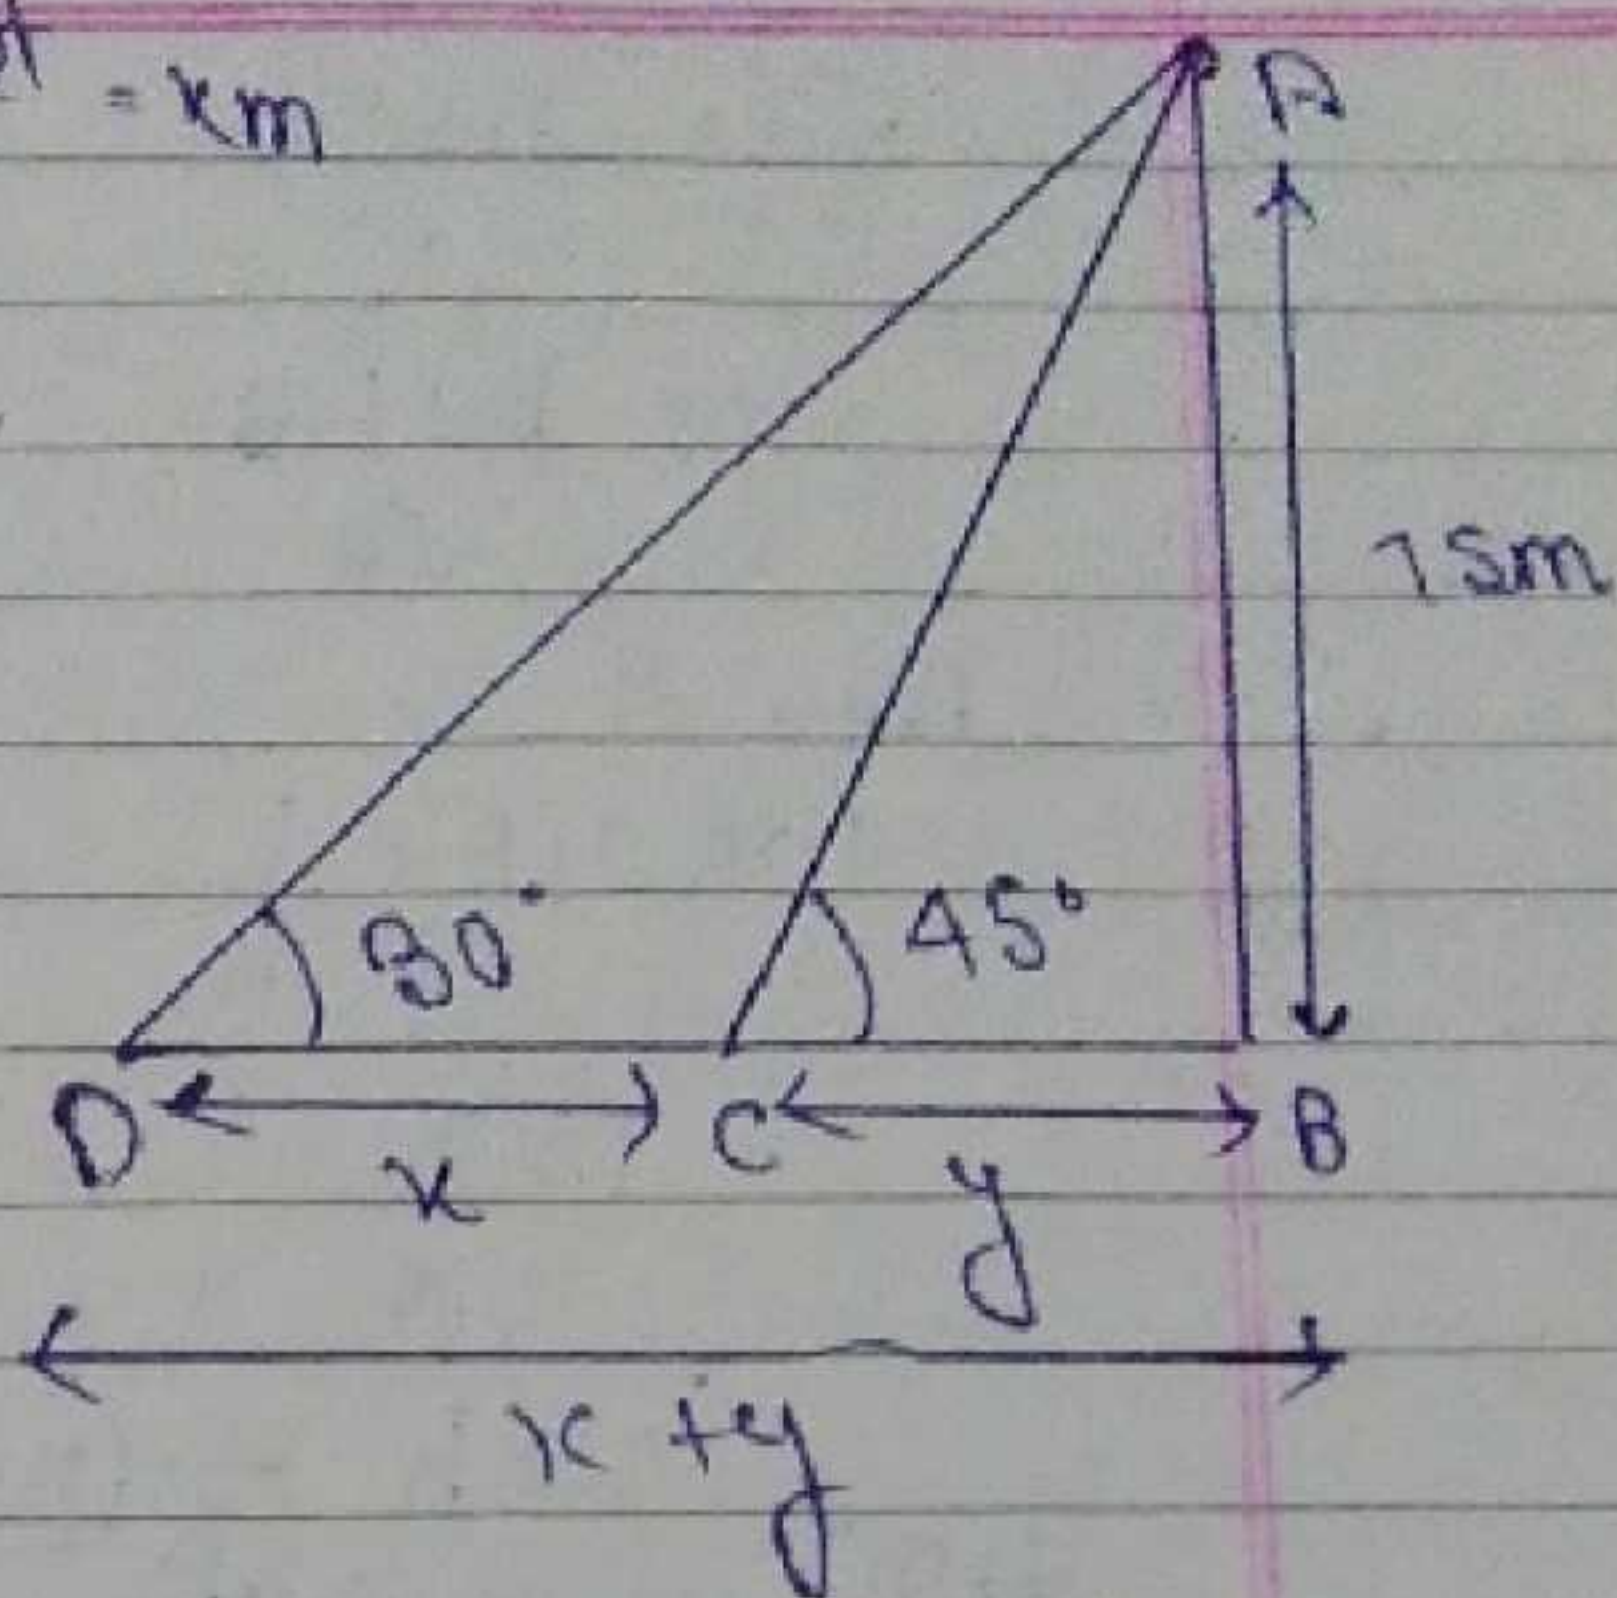 = xm
A
75m
30°
45°
D
x
C
y
B
x + y